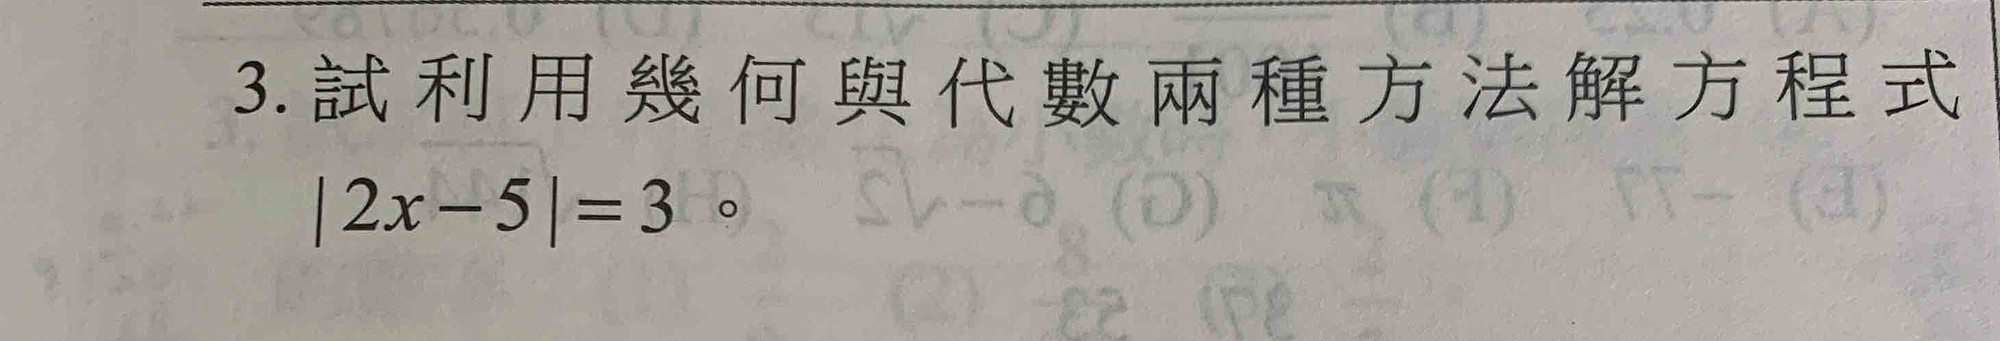 3. 試利用幾何與代數兩種方法解方程式
|2x－5|＝3。